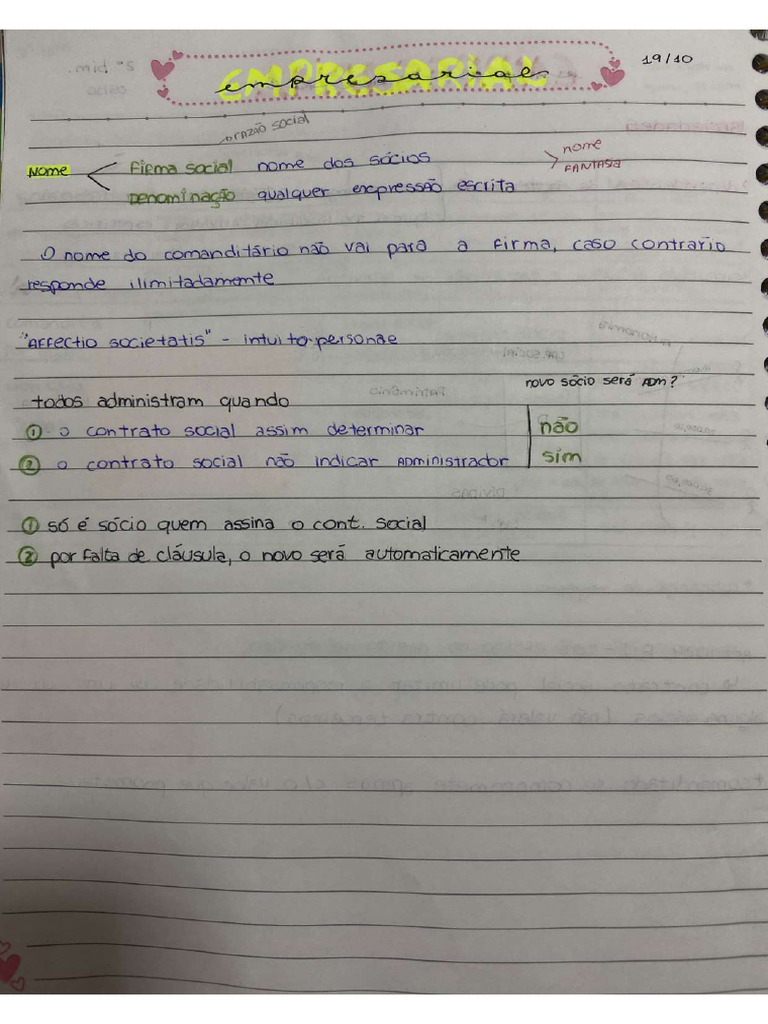 EMPRESARIAL
empresarial
19/10
razão social
Nome
Firma social nome dos sócios
Denominação qualquer expressão escrita
nome FANTASIA
O nome do comanditário não vai para a firma, caso contrario
responde ilimitadamente
"Affectio societatis" - intuito personae
novo sócio será ADM?
todos administram quando
① o contrato social assim determinar não
② o contrato social não indicar ADMINISTRADOR sim
① só é sócio quem assina o cont. social
② por falta de cláusula, o novo será automaticamente